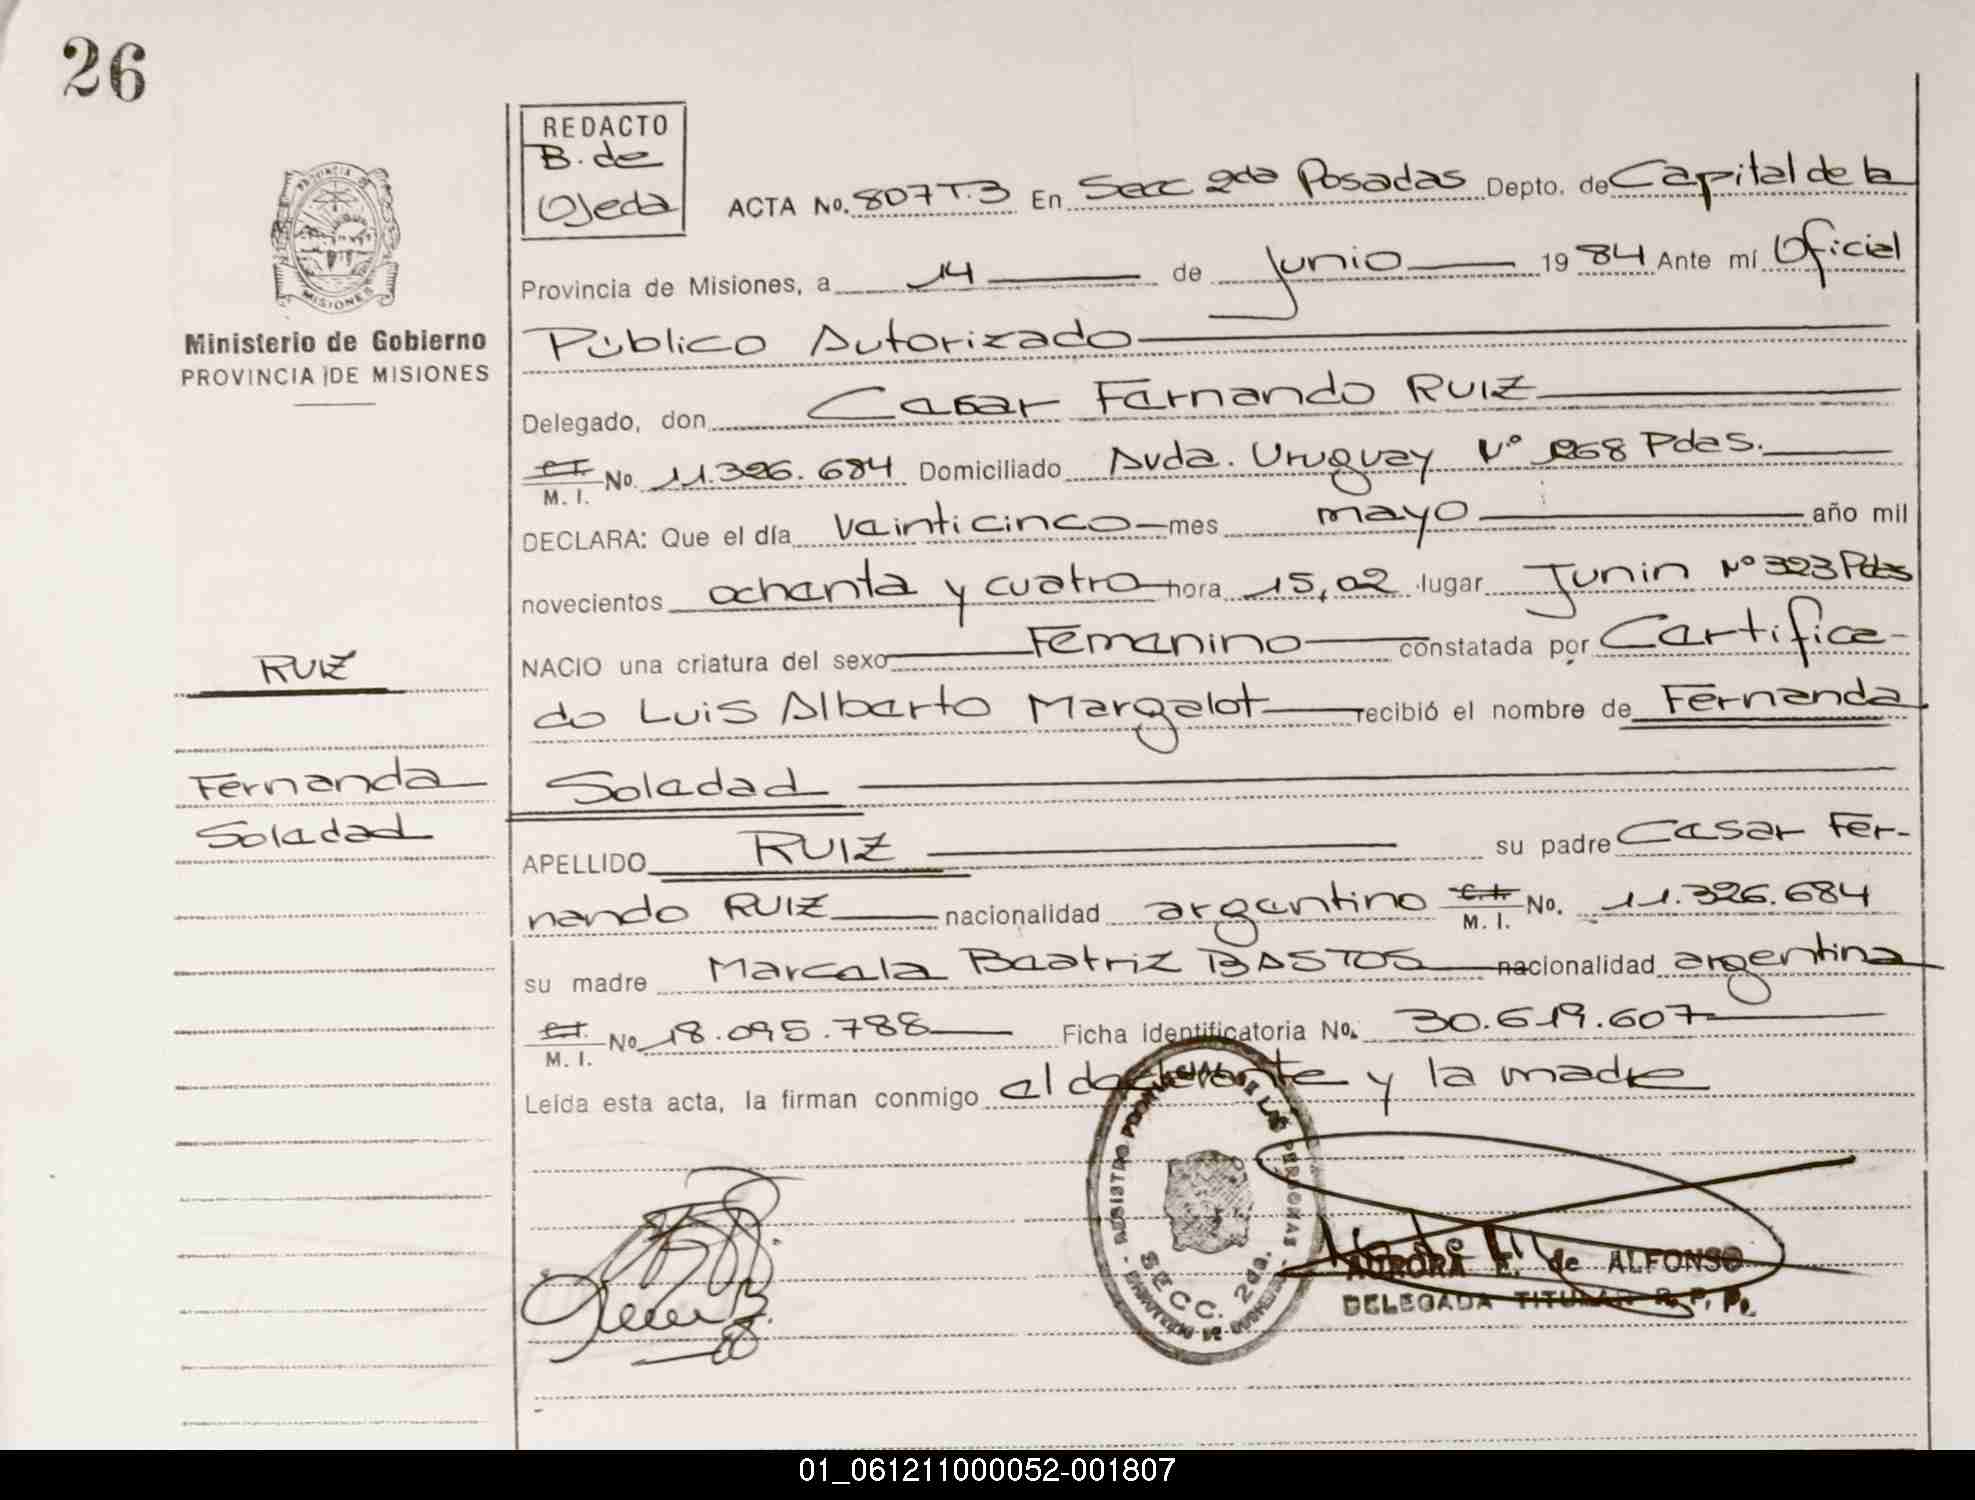 26
REDACTO
B. de
Ojeda
ACTA No. 807 T.3 En Secc 2da Posadas Depto. de Capital de la
PROVINCIA DE
MISIONES
Provincia de Misiones, a 14 de Junio 1984 Ante mí Oficial
Ministerio de Gobierno
PROVINCIA DE MISIONES
Público Autorizado
Delegado, don Cesar Fernando RUIZ
C.I.
M. I. No. 11.326.684 Domiciliado Avda. Uruguay Nº Pdas.
DECLARA: Que el día veinticinco mes mayo año mil
novecientos ochenta y cuatro hora 15,02 lugar Junin Nº 323 Pdas
NACIO una criatura del sexo Femenino constatada por Certifica-
do Luis Alberto Margalot recibió el nombre de Fernanda
Soledad
RUIZ
Fernanda
Soledad
APELLIDO RUIZ su padre Cesar Fer-
nando RUIZ nacionalidad argentino C.I. M. I. No. 11.326.684
su madre Marcela Beatriz BASTOS nacionalidad argentina
C.I.
M. I. No 18.095.788 Ficha identificatoria No. 30.619.607
Leída esta acta, la firman conmigo el declarante y la madre
REGISTRO PROVINCIAL DE LAS PERSONAS
SECC. 2da.
AURORA E. de ALFONSO
DELEGADA TITULAR R. P. P.
01_061211000052-001807